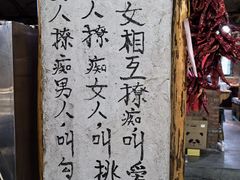 女相互撩痴叫愛
人撩痴女人·叫挑
人撩痴男人·叫勾